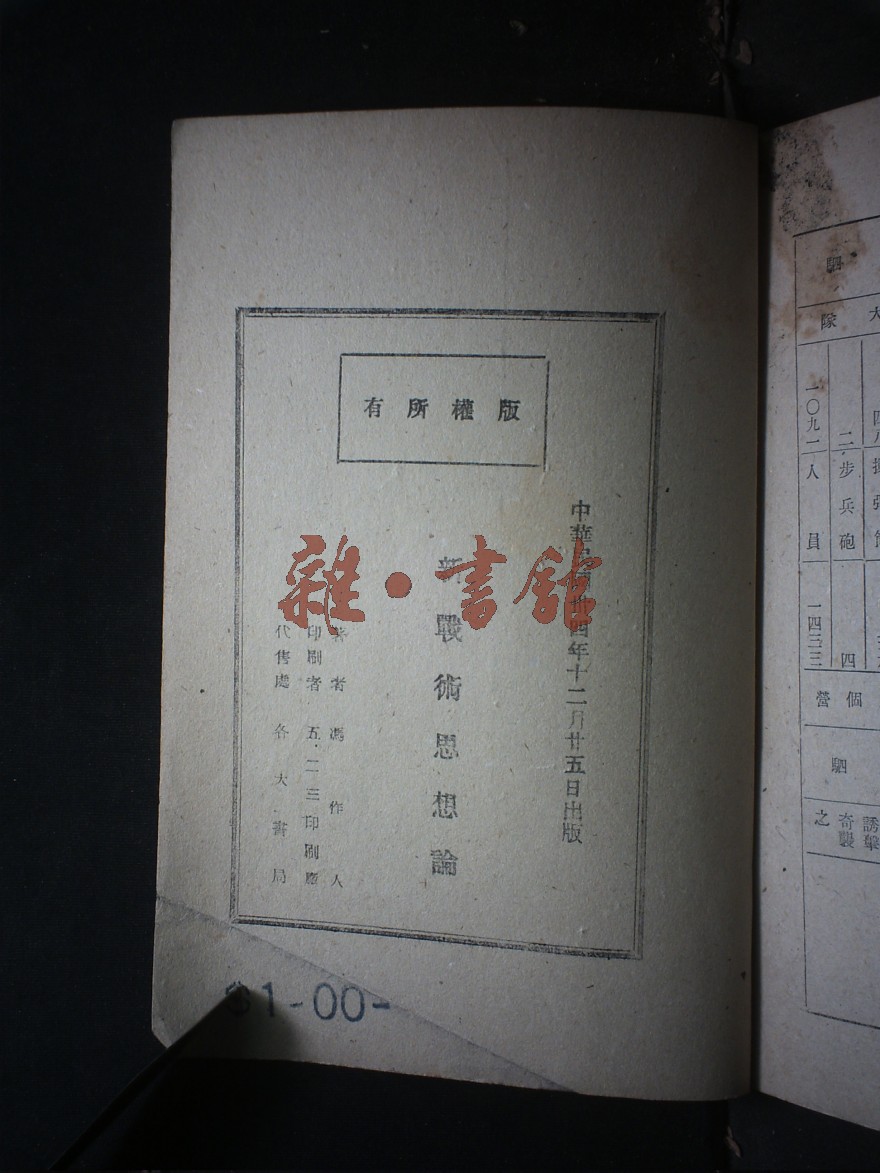 版權所有
中華民國卅四年十二月廿五日出版
新戰術思想論
著者 馮作人
印刷者 五·二三印刷廠
代售處 各大書局
雜·書館
1-00-
大
隊
二步兵砲 四
一〇九一人員 一四三三
個
營
駟
誘擊
奇襲
之